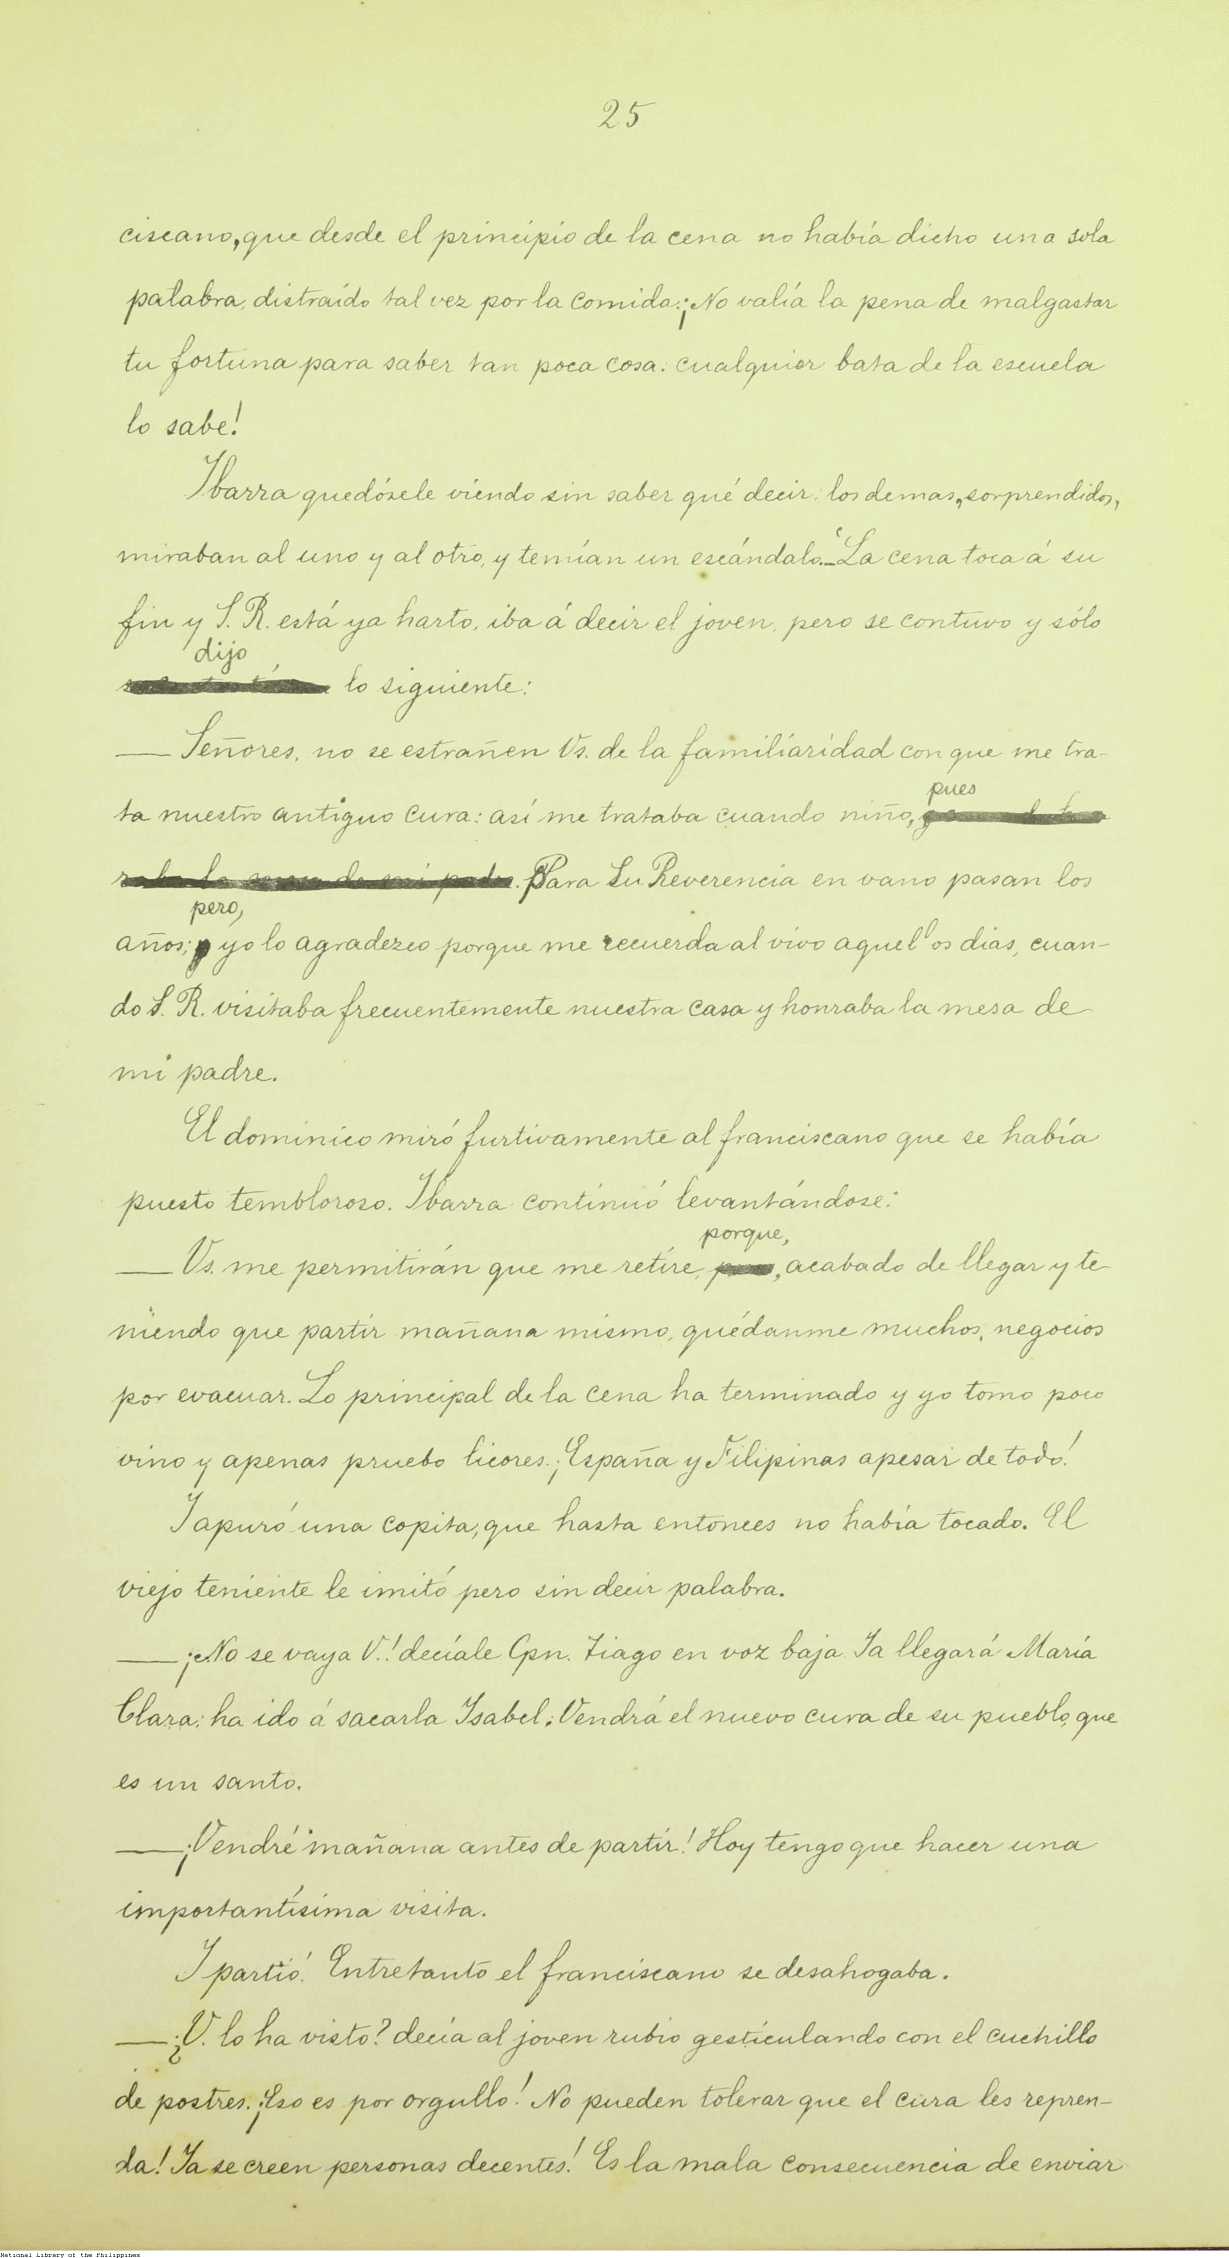 25
ciscano, que desde el principio de la cena no había dicho una sola
palabra, distraído tal vez por la comida: ¡No valía la pena de malgastar
tu fortuna para saber tan poca cosa: cualquier bata de la escuela
lo sabe!
Ibarra quedósele viendo sin saber qué decir: los demas, sorprendidos,
miraban al uno y al otro, y temían un escándalo.— La cena toca á su
fin y S. R. está ya harto, iba á decir el joven, pero se contuvo y sólo
dijo
lo siguiente:
— Señores, no se estrañen Vs. de la familiaridad con que me tra-
pues
ta nuestro antiguo cura: así me trataba cuando niño,
raba la mesa de mi padre. Para Su Reverencia en vano pasan los
pero,
años; yo lo agradezco porque me recuerda al vivo aquellos dias, cuan-
do S. R. visitaba frecuentemente nuestra casa y honraba la mesa de
mi padre.
El dominico miró furtivamente al franciscano que se había
puesto tembloroso. Ibarra continuó levantándose:
porque,
— Vs. me permitirán que me retire, acabado de llegar y te-
niendo que partir mañana mismo, quédanme muchos, negocios
por evacuar. Lo principal de la cena ha terminado y yo tomo poco
vino y apenas pruebo licores. ¡España y Filipinas apesar de todo!
Y apuró una copita, que hasta entonces no había tocado. El
viejo teniente le imitó pero sin decir palabra.
— ¡No se vaya V.! decíale Cpn. Tiago en voz baja. Ya llegará María
Clara: ha ido á sacarla Isabel. Vendrá el nuevo cura de su pueblo, que
es un santo.
— ¡Vendré mañana antes de partir! Hoy tengo que hacer una
importantísima visita.
Y partió. Entretanto el franciscano se desahogaba.
— ¿V. lo ha visto? decía al joven rubio gesticulando con el cuchillo
de postres. ¡Eso es por orgullo! No pueden tolerar que el cura les repren-
da! Ya se creen personas decentes! Es la mala consecuencia de enviar
National Library of the Philippines